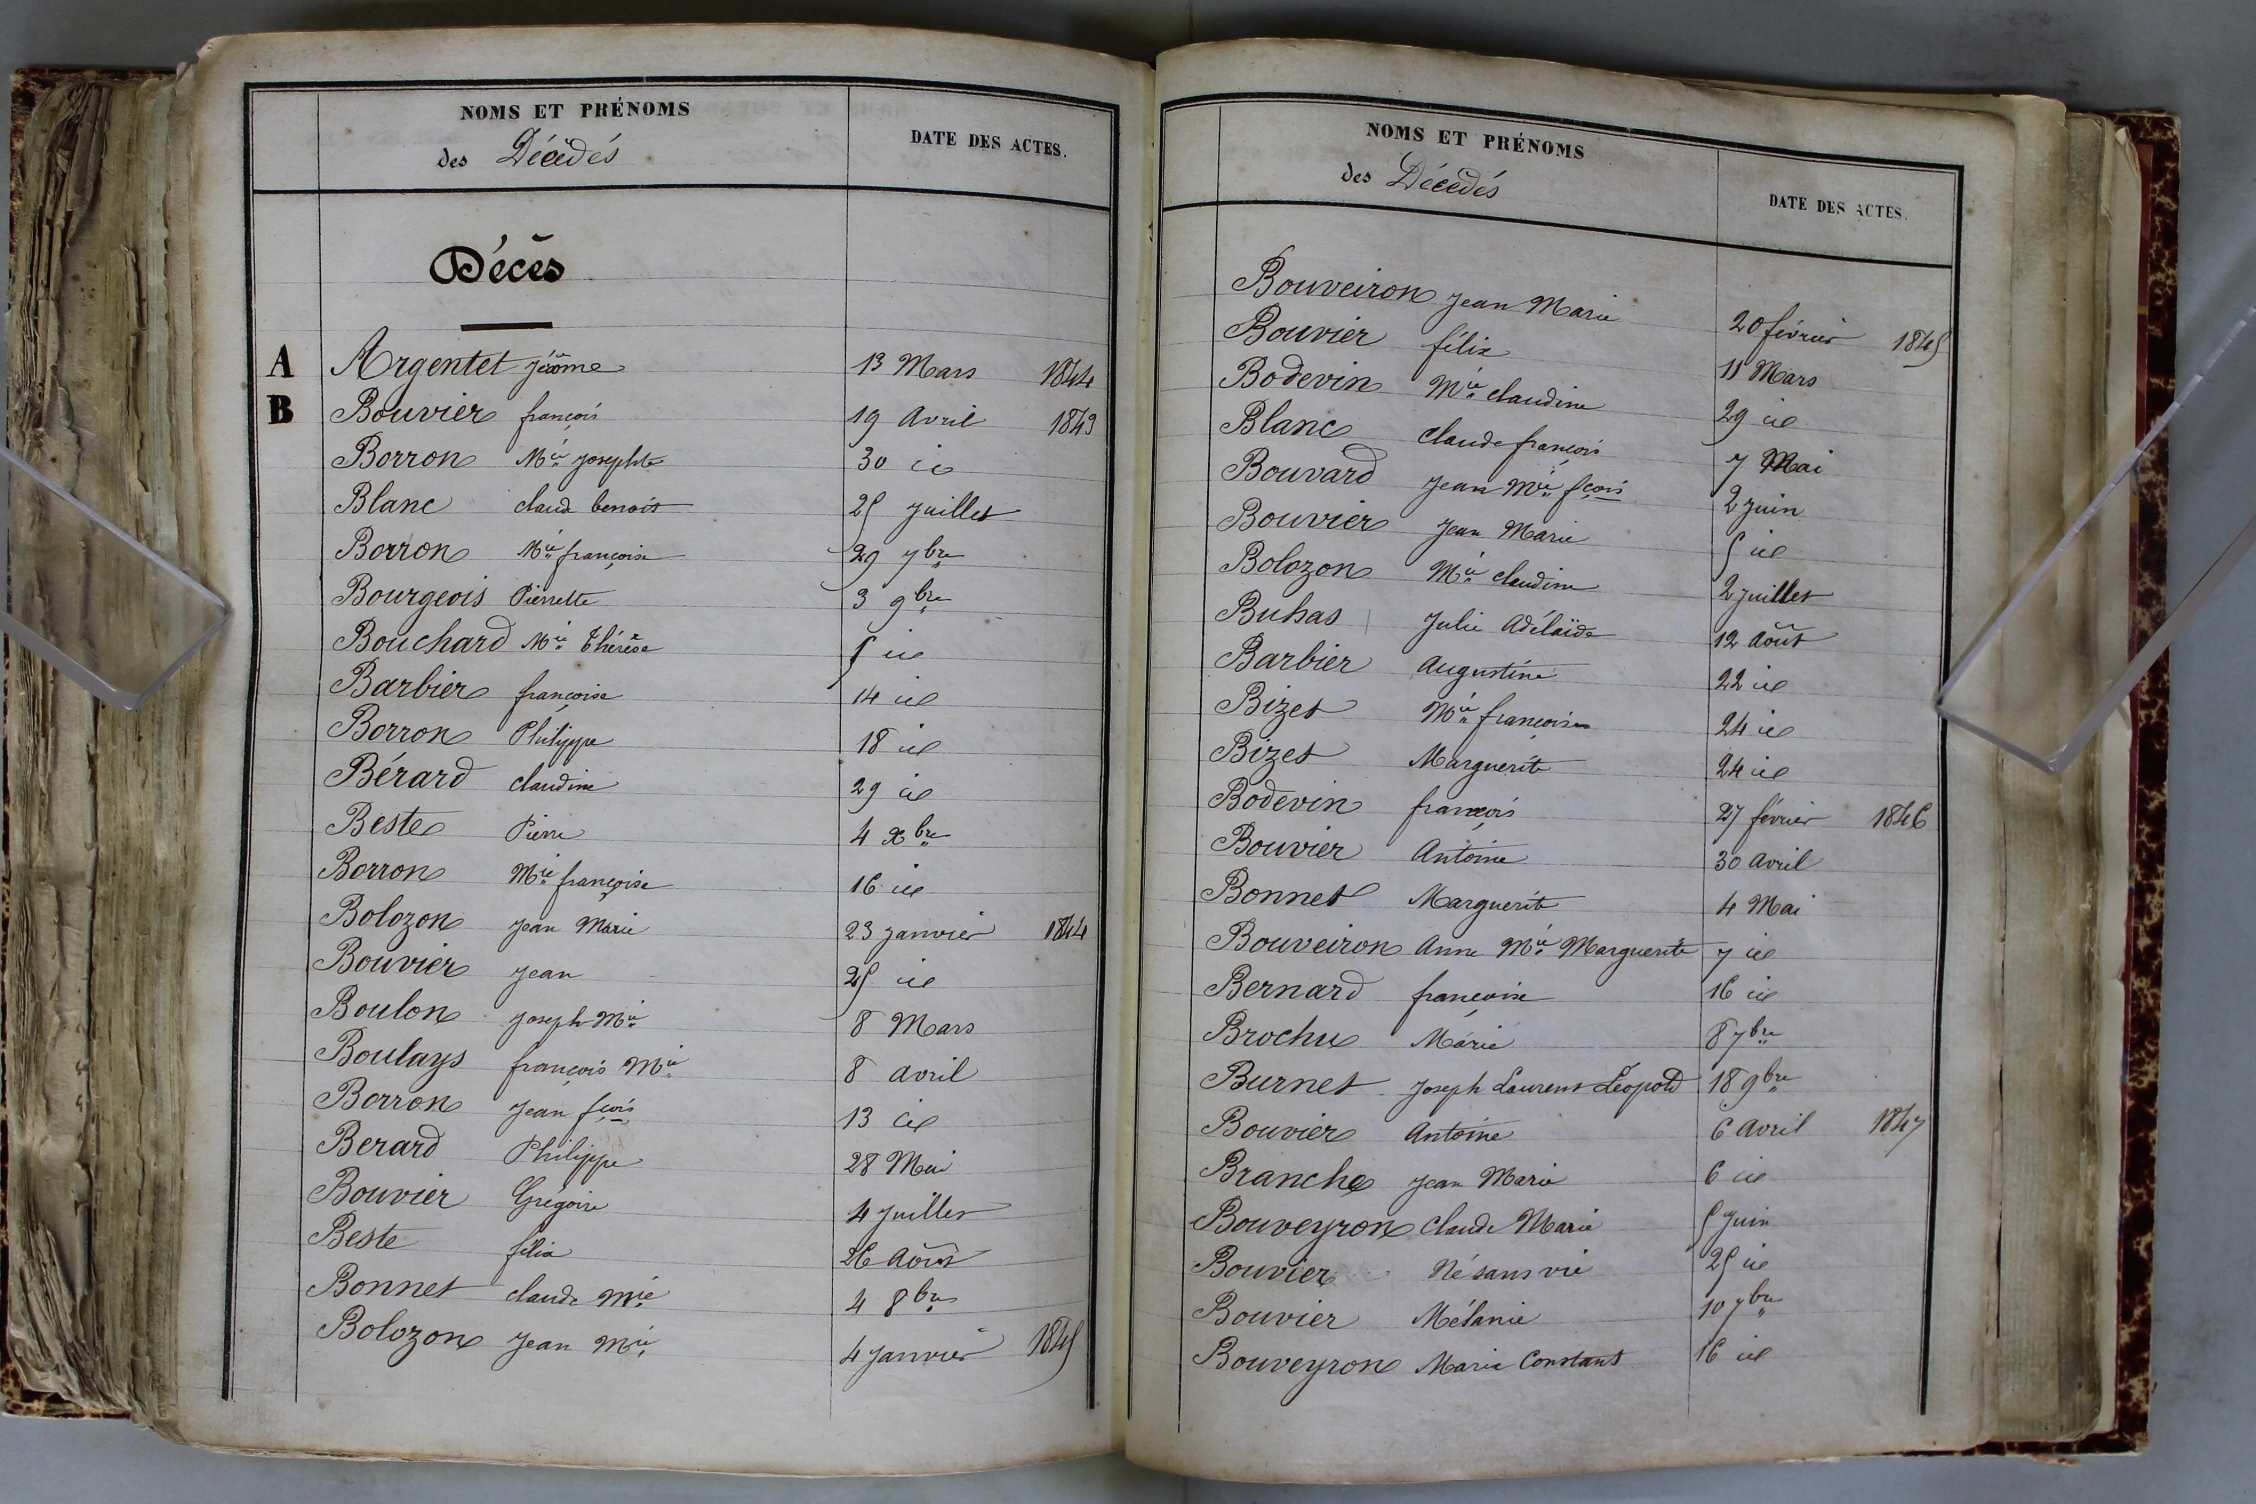 NOMS ET PRÉNOMS
des Décédés
DATE DES ACTES.
Décès
A Argentet Jérôme 13 Mars 1844
B Bouvier françois 19 Avril 1843
Borron Mie josephte 30 id
Blanc claud benoit 25 juillet
Borron Mie françoise 29 7bre
Bourgeois Pierrette 3 9bre
Bouchard Mie Thérèse 5 id
Barbier françoise 14 id
Borron Philippe 18 id
Bérard claudine 29 id
Beste Pierre 4 xbre
Borron Mie françoise 16 id
Bolozon jean Marie 23 janvier 1844
Bouvier jean 25 id
Boulon joseph Mie 8 Mars
Boulays françois Mie 8 avril
Borron jean fçois 13 id
Berard Philippe 28 Mai
Bouvier Grégoire 4 juillet
Beste félix 26 Août
Bonnet claude Mie 4 8bre
Bolozon jean Mie 4 janvier 1845
NOMS ET PRÉNOMS
des Décédés
DATE DES ACTES.
Bouveiron jean Marie 20 février 1845
Bouvier félix 11 Mars
Bodevin Mie claudine 29 id
Blanc claude françois 7 Mai
Bouvard jean Mie fçois 2 juin
Bouvier jean Marie 5 id
Bolozon Mie claudine 2 juillet
Buhas julie adélaïde 12 août
Barbier augustine 22 id
Bizet Mie françoise 24 id
Bizet Marguerite 24 id
Bodevin françois 27 février 1846
Bouvier Antoine 30 avril
Bonnet Marguerite 4 Mai
Bouveiron Anne Mie Marguerite 7 id
Bernard françoise 16 id
Brochu Marie 8 7bre
Burnet joseph Laurent Léopold 18 9bre
Bouvier Antoine 6 avril 1847
Branche jean Marie 6 id
Bouveyron claude Marie 5 juin
Bouvier Né sans vie 25 id
Bouvier Mélanie 10 7bre
Bouveyron Marie Constant 16 id